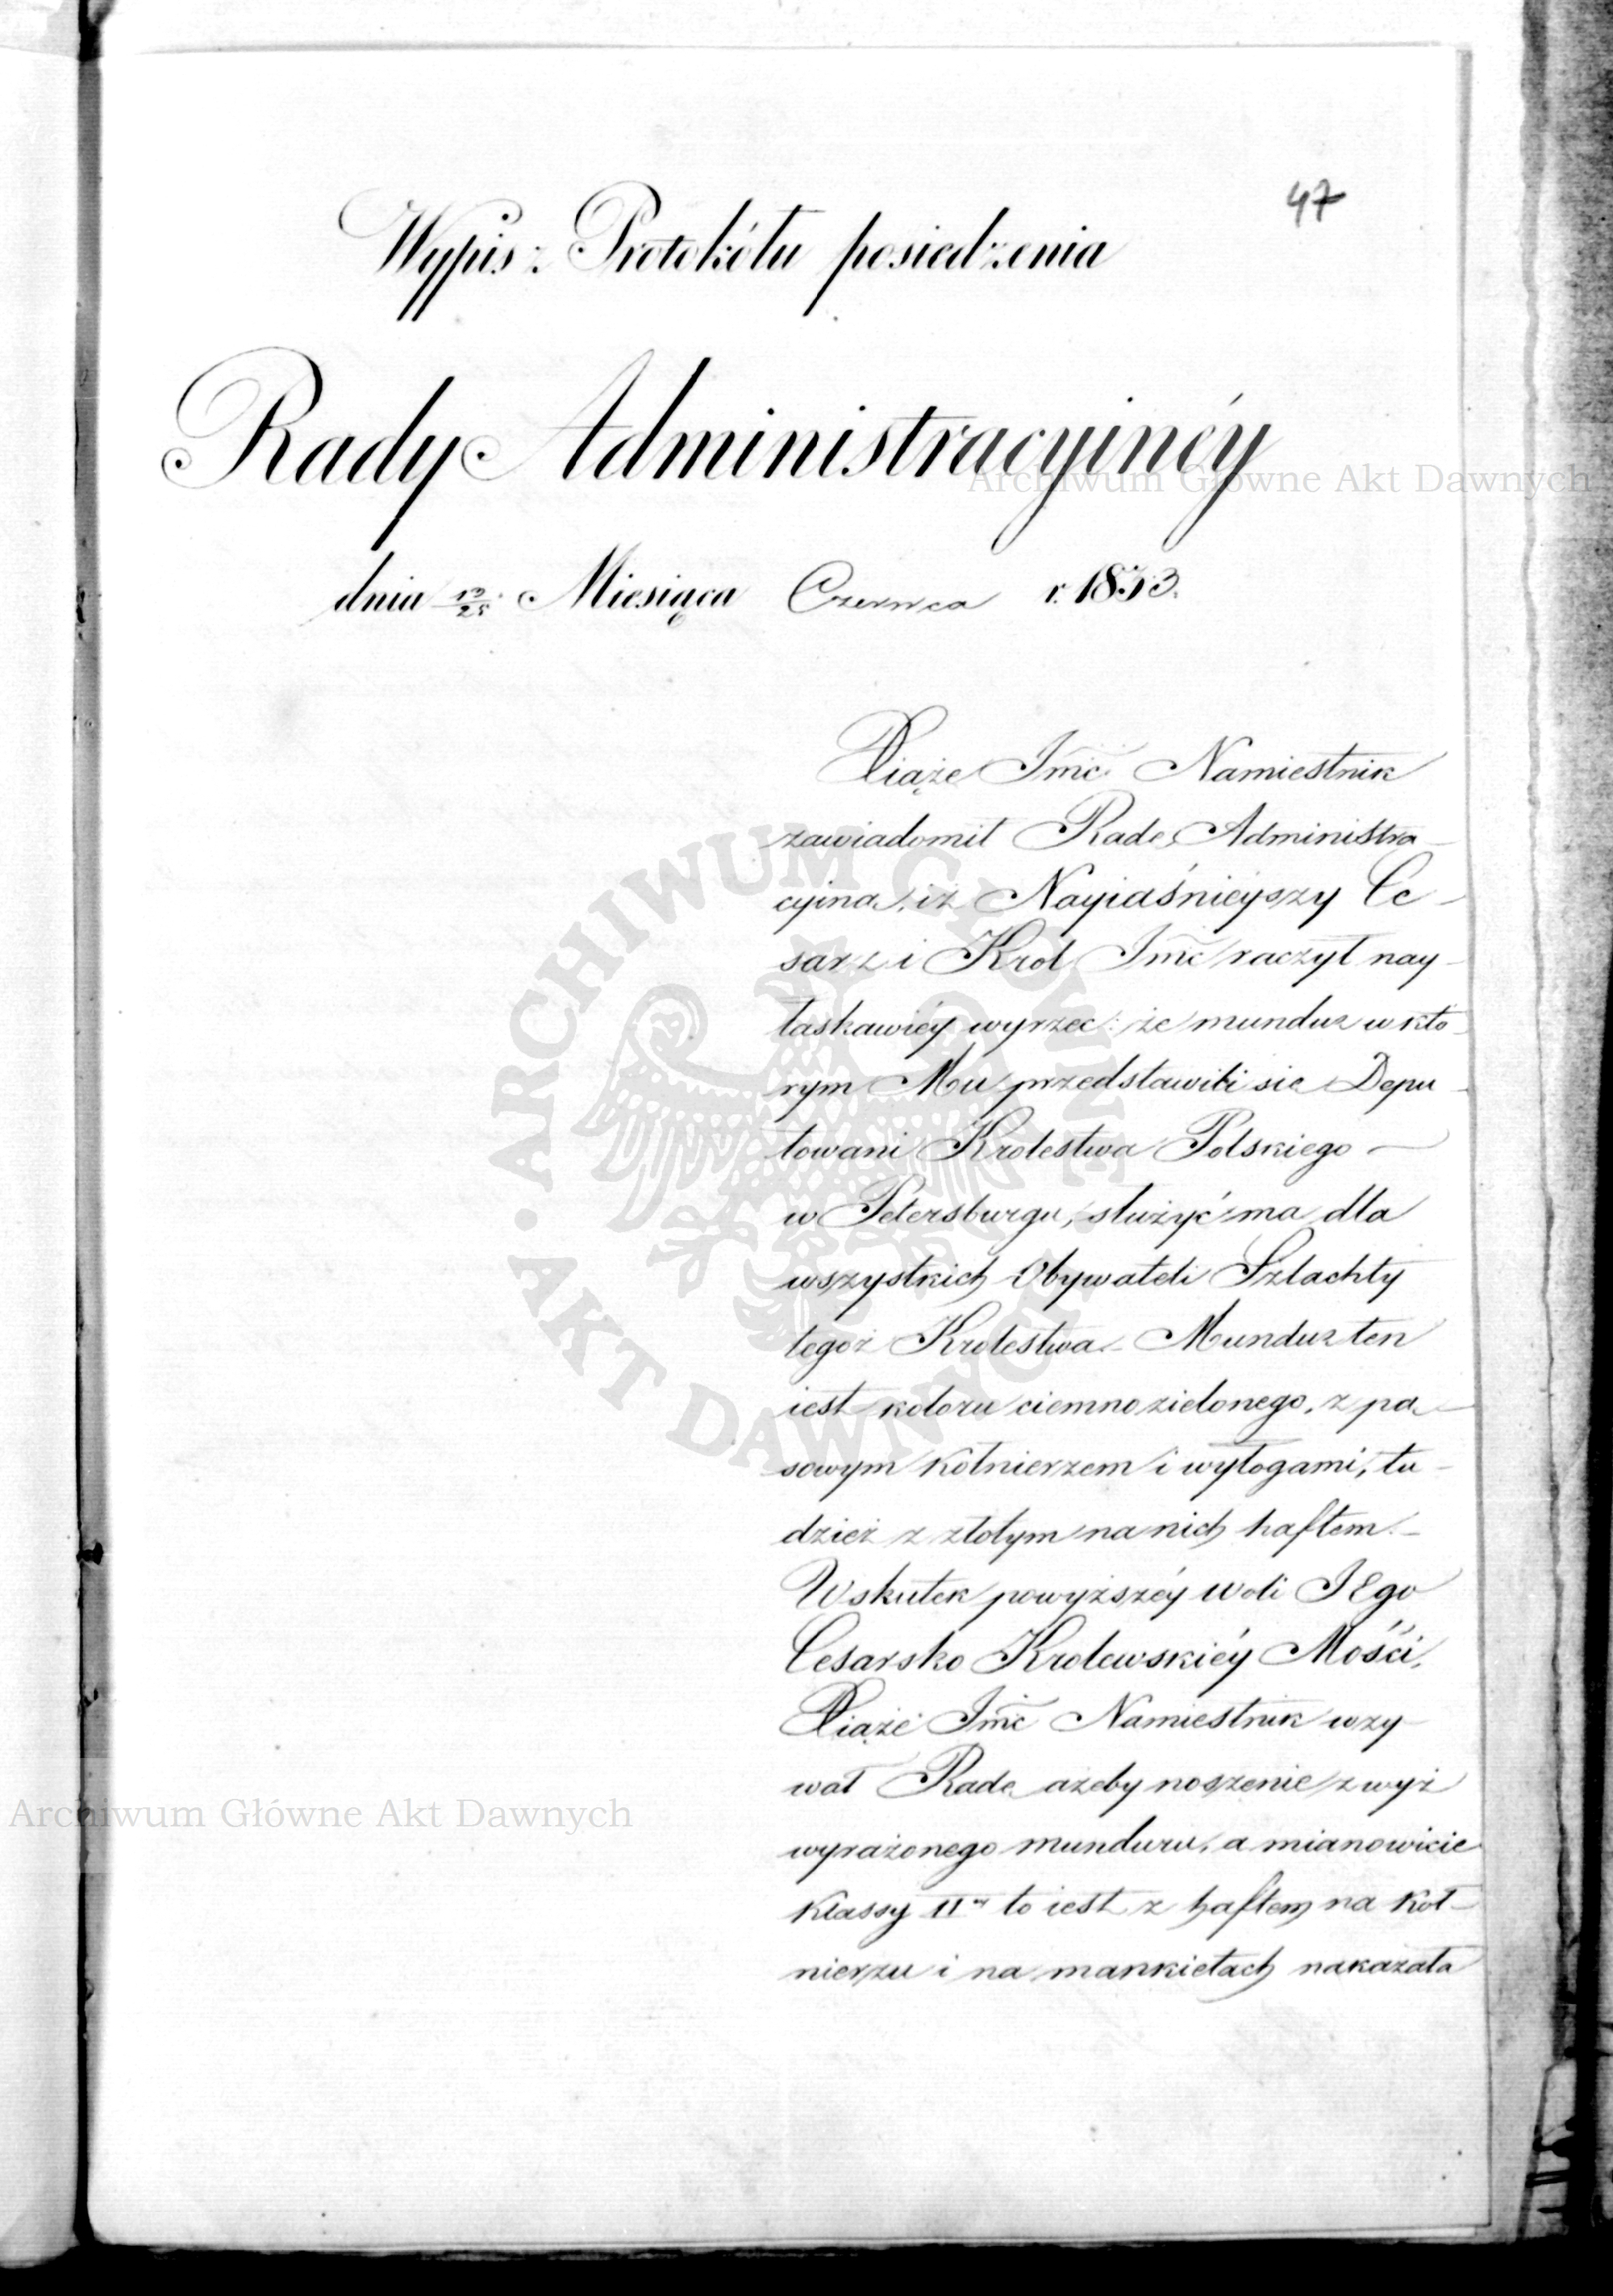 47
Wypis z Protokółu posiedzenia
Rady Administracyinéy
dnia 13/25 Miesiąca Czerwca r. 1833.
Xiąże Imć Namiestnik
zawiadomił Radę Administra-
cyiną, iż Nayiaśnieyszy Ce-
sarz i Król Imć raczył nay-
łaskawiéy wyrzec: że mundur w któ-
rym Mu przedstawili się Depu-
towani Królestwa Polskiego —
w Petersburgu, służyć ma dla
wszystkich Obywateli Szlachty
tegoż Królestwa. Mundur ten
iest koloru ciemno zielonego, z pą-
sowym kołnierzem i wyłogami, tu-
dzież z złotym na nich haftem. —
Wskutek powyższéy Woli JEgo
Cesarsko Królewskiéy Mości,
Xiąże Imć Namiestnik wzy-
wał Radę ażeby noszenie zwyż
wyrażonego munduru, a mianowicie
klassy II to iest z haftem na koł-
nierzu i na mankietach nakazała
Archiwum Główne Akt Dawnych
ARCHIWUM GŁÓWNE • AKT DAWNYCH
Archiwum Główne Akt Dawnych